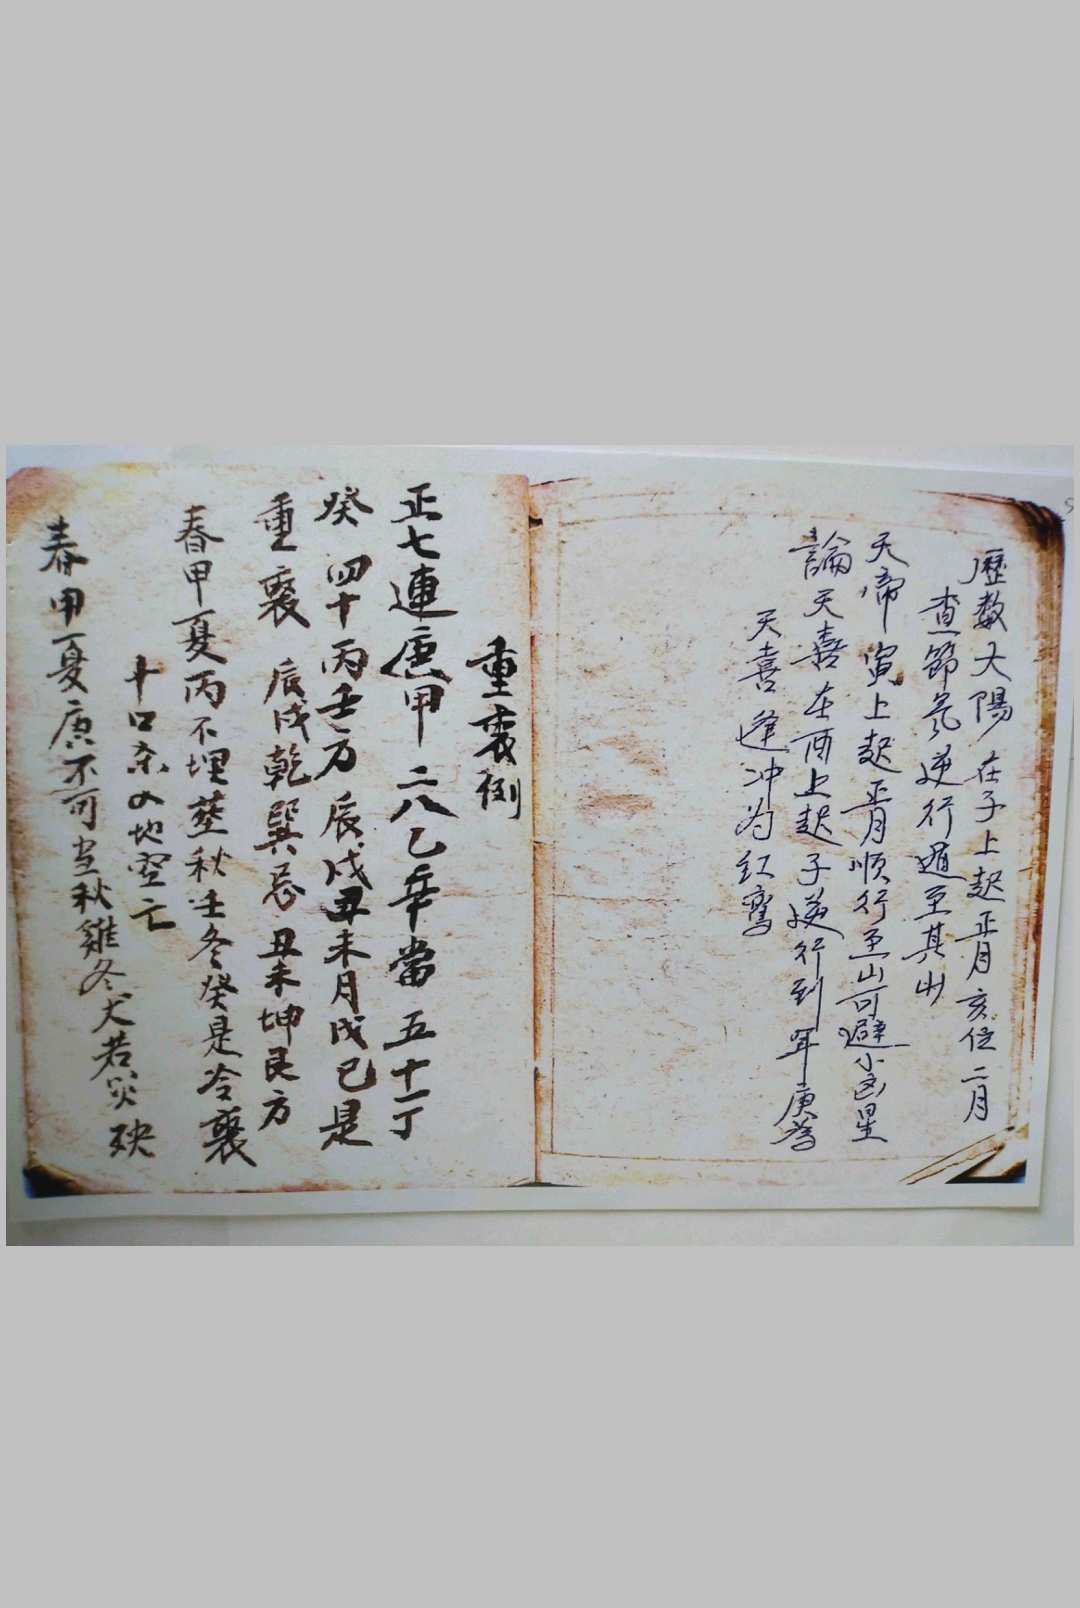 歷数大陽在子上起正月亥位二月
查節氣逆行遁至其山
天帝寅上起正月順行至山可避小凶星
論天喜在酉上起子逆行到年庚為
天喜逢冲为红鸾
重喪例
正七連庚甲二八乙辛當五十一丁
癸四十丙壬方辰戌丑未月戊己是
重喪辰戌乾巽忌丑未坤艮方
春甲夏丙不埋塟秋壬冬癸是冷喪
十口杀又地空亡
春甲夏庚不可当秋雞冬犬若災殃